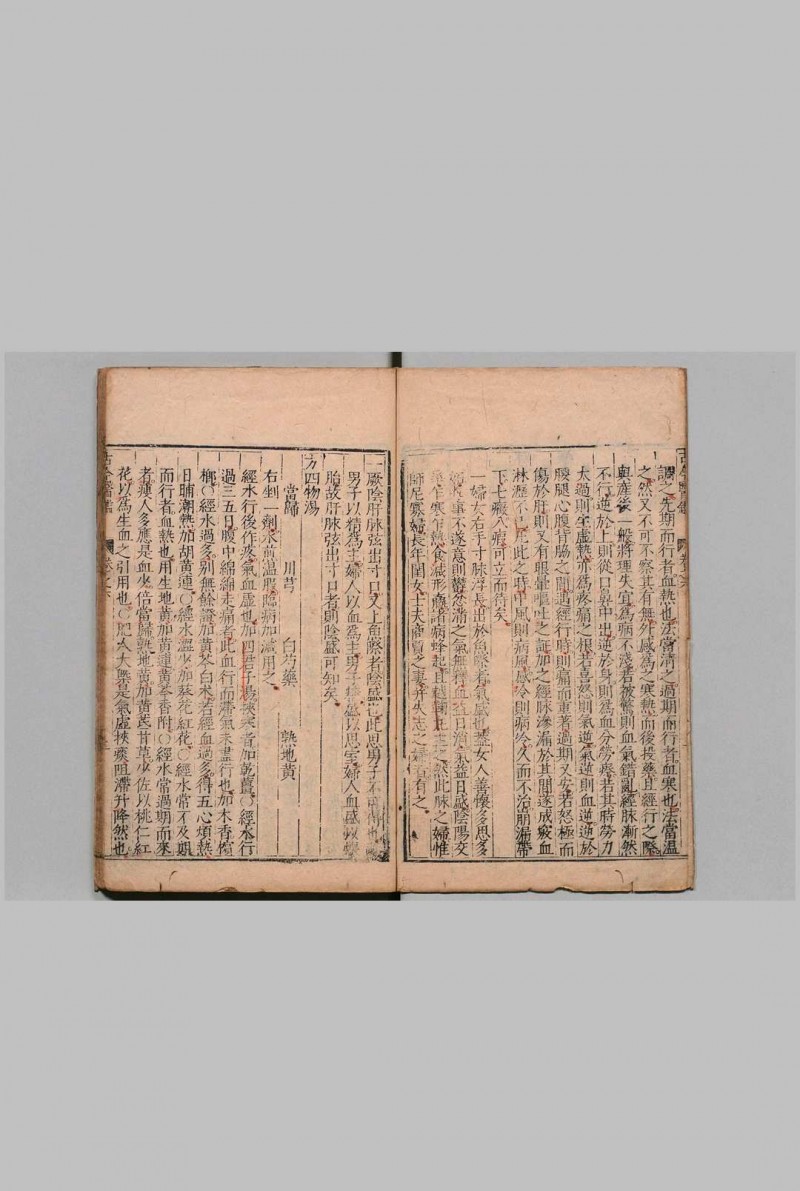 調之先期而行者血熱也法當清之過期而行者血寒也法當溫
之然又不可不察其有無外感爲之寒熱而後投藥且經行之際
與產後一般將理失宜爲病不淺若被驚則血氣錯亂經脉漸然
不行逆於上則從口鼻中出逆於身則爲血分勞瘵若其時勞力
太過則生虛熱亦爲疼痛之根若喜怒則氣逆氣逆則血逆逆於
腰腿心腹背脇之間遇經行時則痛而重著過期又安若怒極而
傷於肝則又有眼暈嘔吐之証加之經脉滲漏於其間遂成竅血
淋瀝不已凡此之時中風則病風感冷則病冷久而不治崩漏帶
下七癥八瘕可立而待矣
一婦女右手寸脉浮長出於魚際者氣盛也蓋女人善懷多思多
事不遂意則鬱忿滿之氣無釋血益日消氣益日盛陰陽交
乍寒乍熱食減形羸諸病蜂起且越鞠 此脉之婦惟
師尼寡婦長年閨女士夫商賈之妻并失志之婦有之
一厥陰肝脉弦出寸口又上魚際者陰盛也此思男子不可得也
男子以精爲主婦人以血爲主男子精盛以思室婦人血盛以懷
胎故肝脉弦出寸口者則陰盛可知矣
方四物湯
當歸 川芎 白芍藥 熟地黃
右剉一劑水煎溫服臨病加減用之
經水行後作疼氣血虛也加四君子湯挾寒者加乾薑〇經水行
過三五日腹中綿綿走痛者此血行而滯氣未盡行也加木香檳
榔〇經水過多別無餘證加黃芩白朮若經血過多得五心煩熱
日晡潮熱加胡黃連〇經水澀少加葵花紅花〇經水常不及期
而行者血熱也用生地黃加黃連黃芩香附〇經水常過期而來
者瘦人多應是血少倍當歸熟地黃加黃芪甘草少佐以桃仁紅
花以爲生血之引用也〇肥人大槩是氣虛挾痰阻滯升降然也
古今醫鑑
卷之六